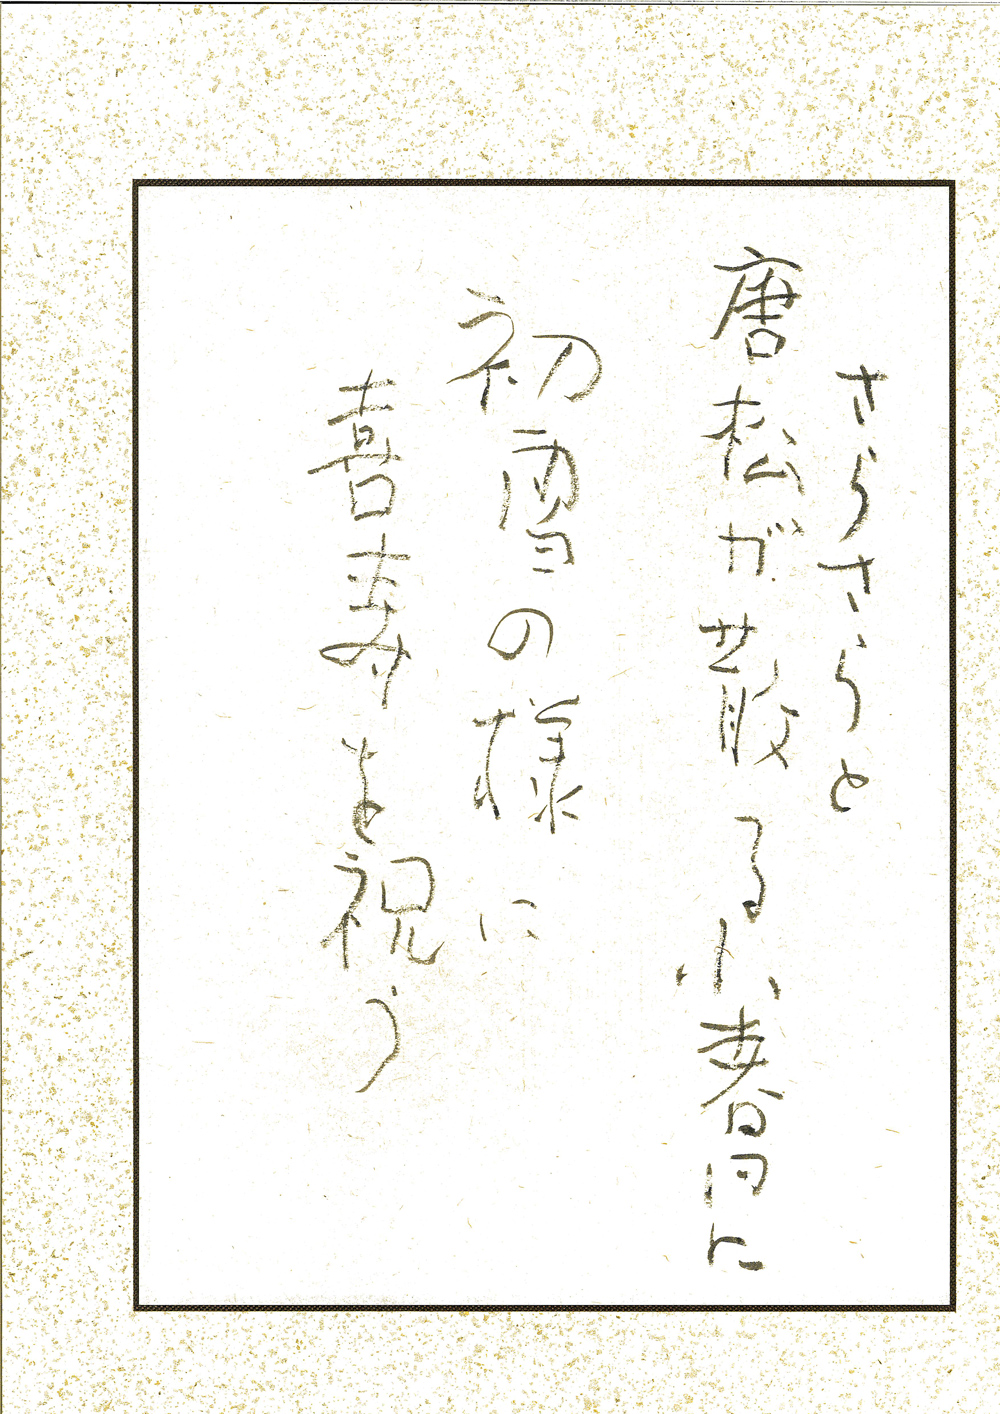 さらさらと
唐松が散る小春日に
初雪の様に
喜寿を祝う